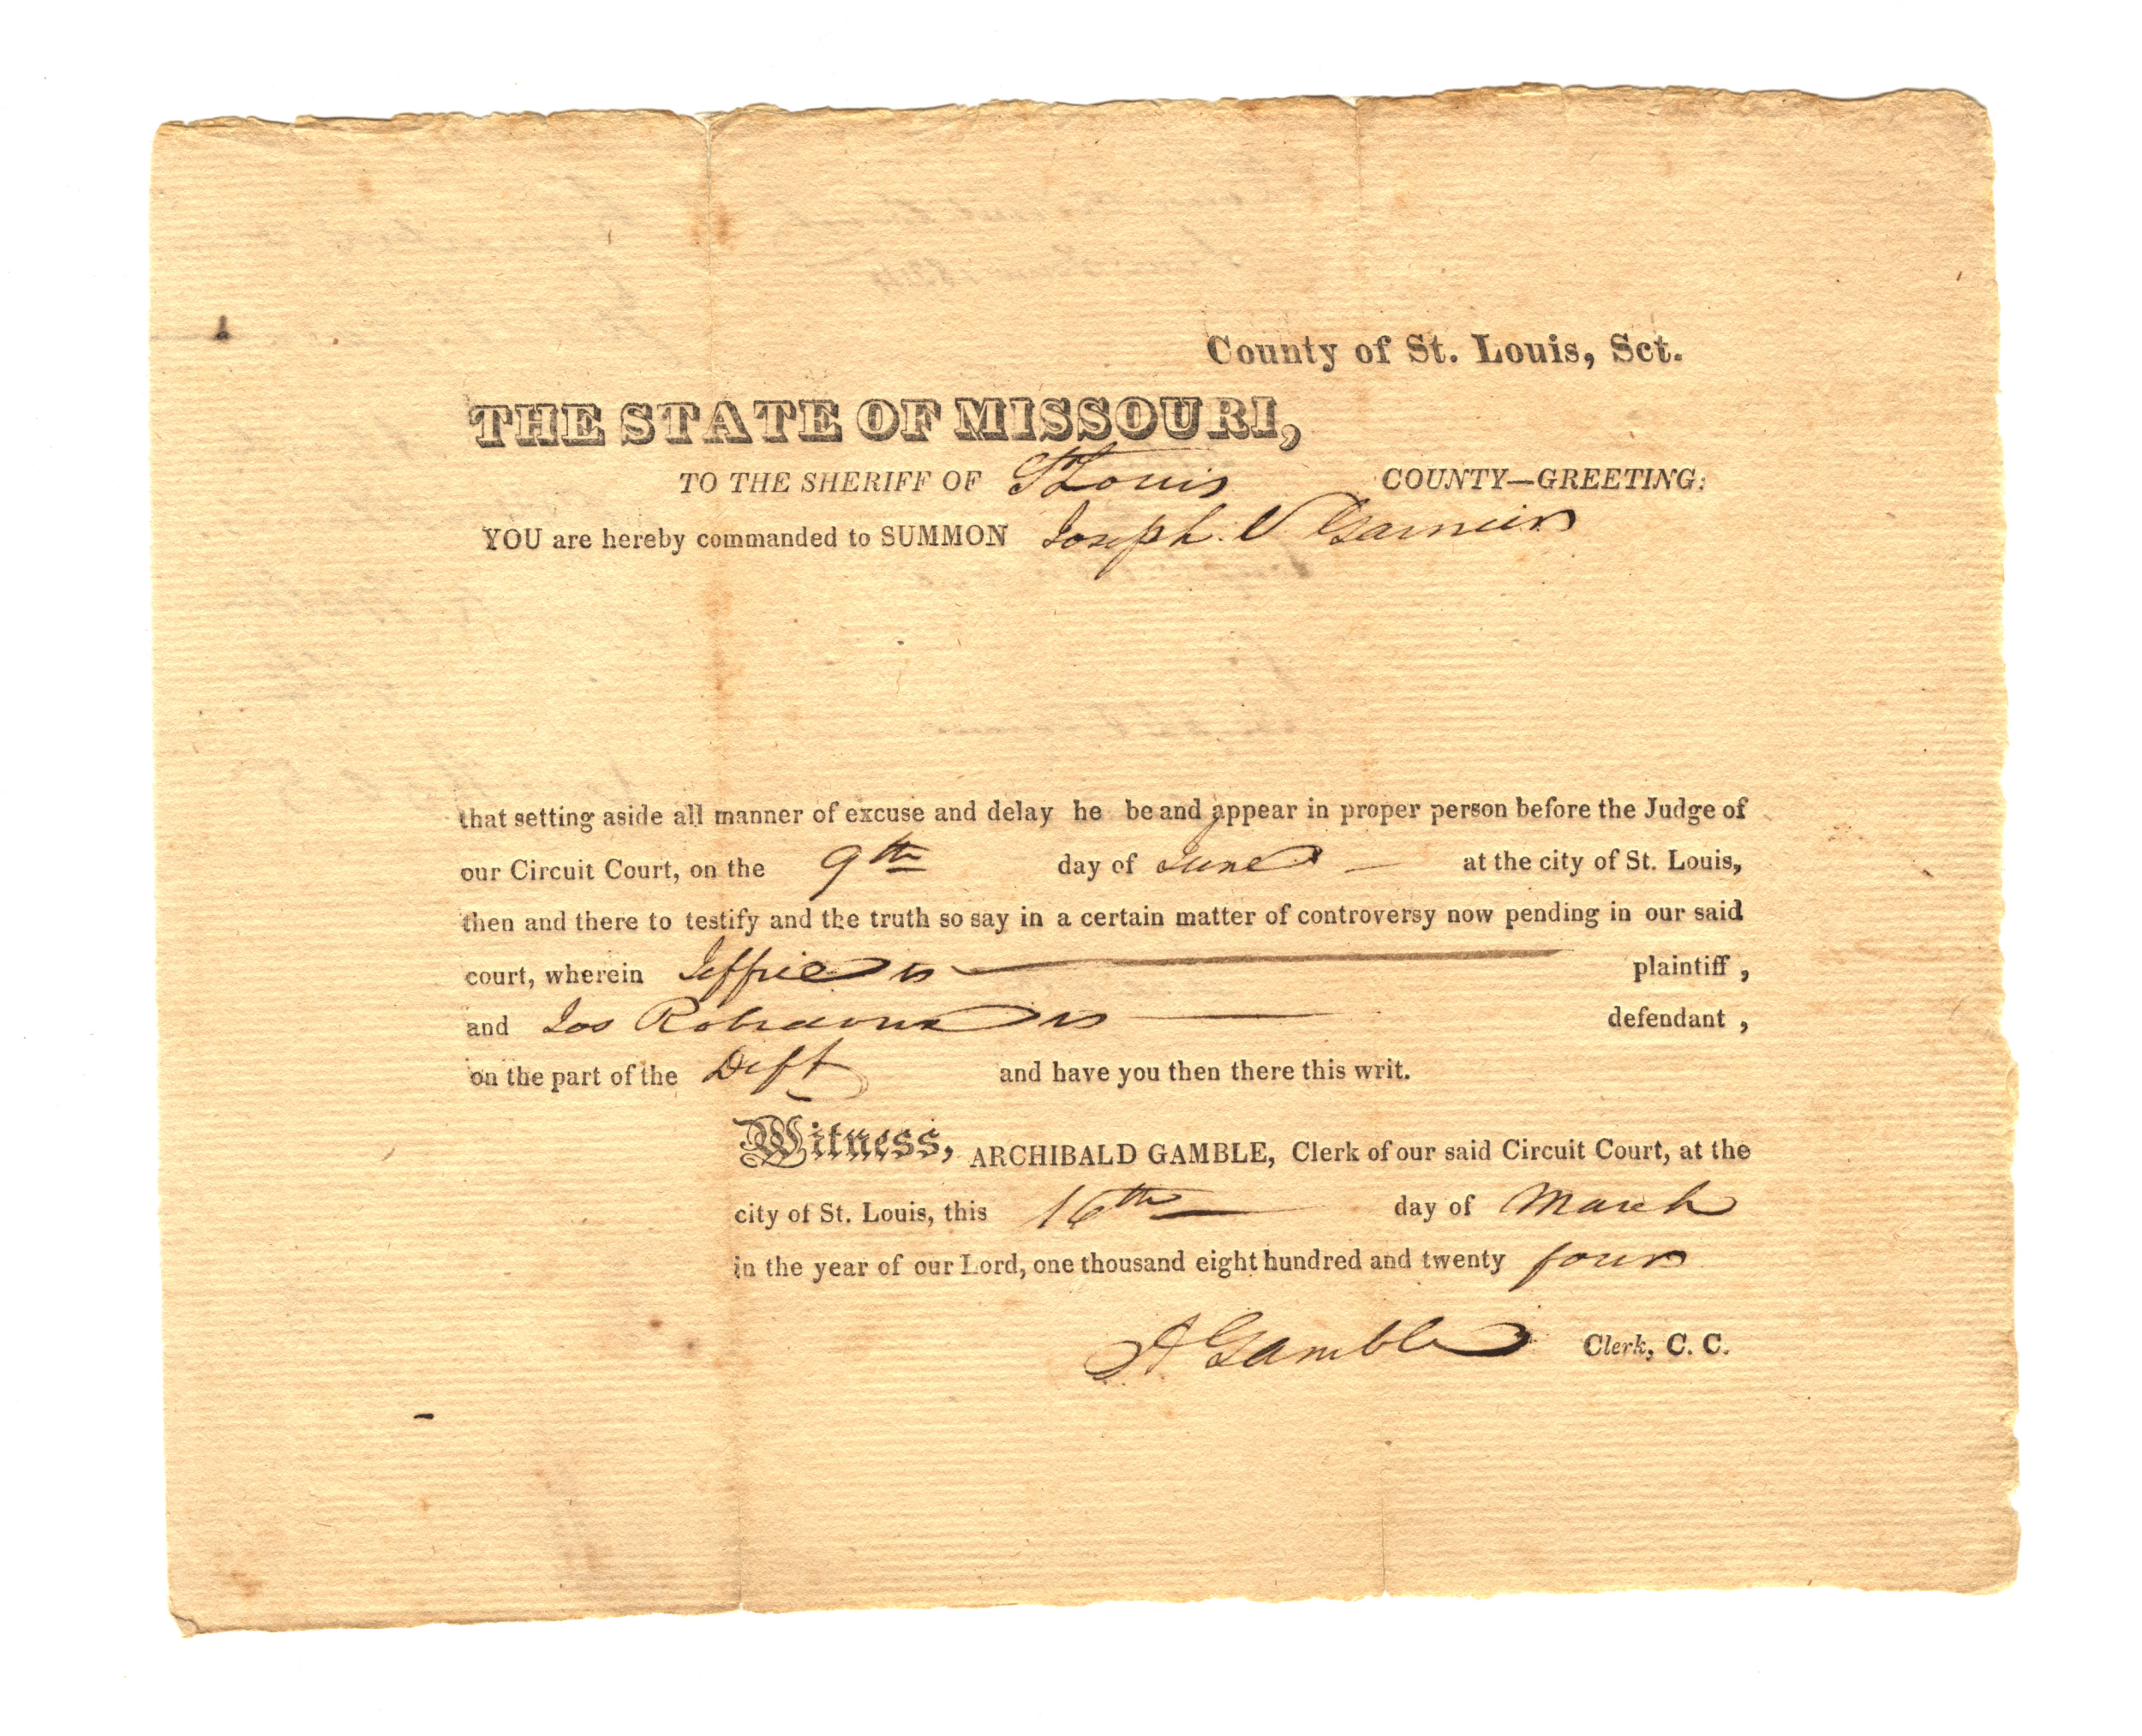 County of St. Louis, Sct.
THE STATE OF MISSOURI,
TO THE SHERIFF OF St Louis COUNTY—GREETING:
YOU are hereby commanded to SUMMON Joseph V Garnier
that setting aside all manner of excuse and delay he be and appear in proper person before the Judge of
our Circuit Court, on the 9th day of June at the city of St. Louis,
then and there to testify and the truth so say in a certain matter of controversy now pending in our said
court, wherein plaintiff,
and Jos defendant,
on the part of the Deft and have you then there this writ.
Witness, ARCHIBALD GAMBLE, Clerk of our said Circuit Court, at the
city of St. Louis, this 16th day of March
in the year of our Lord, one thousand eight hundred and twenty four
A Gamble Clerk, C. C.